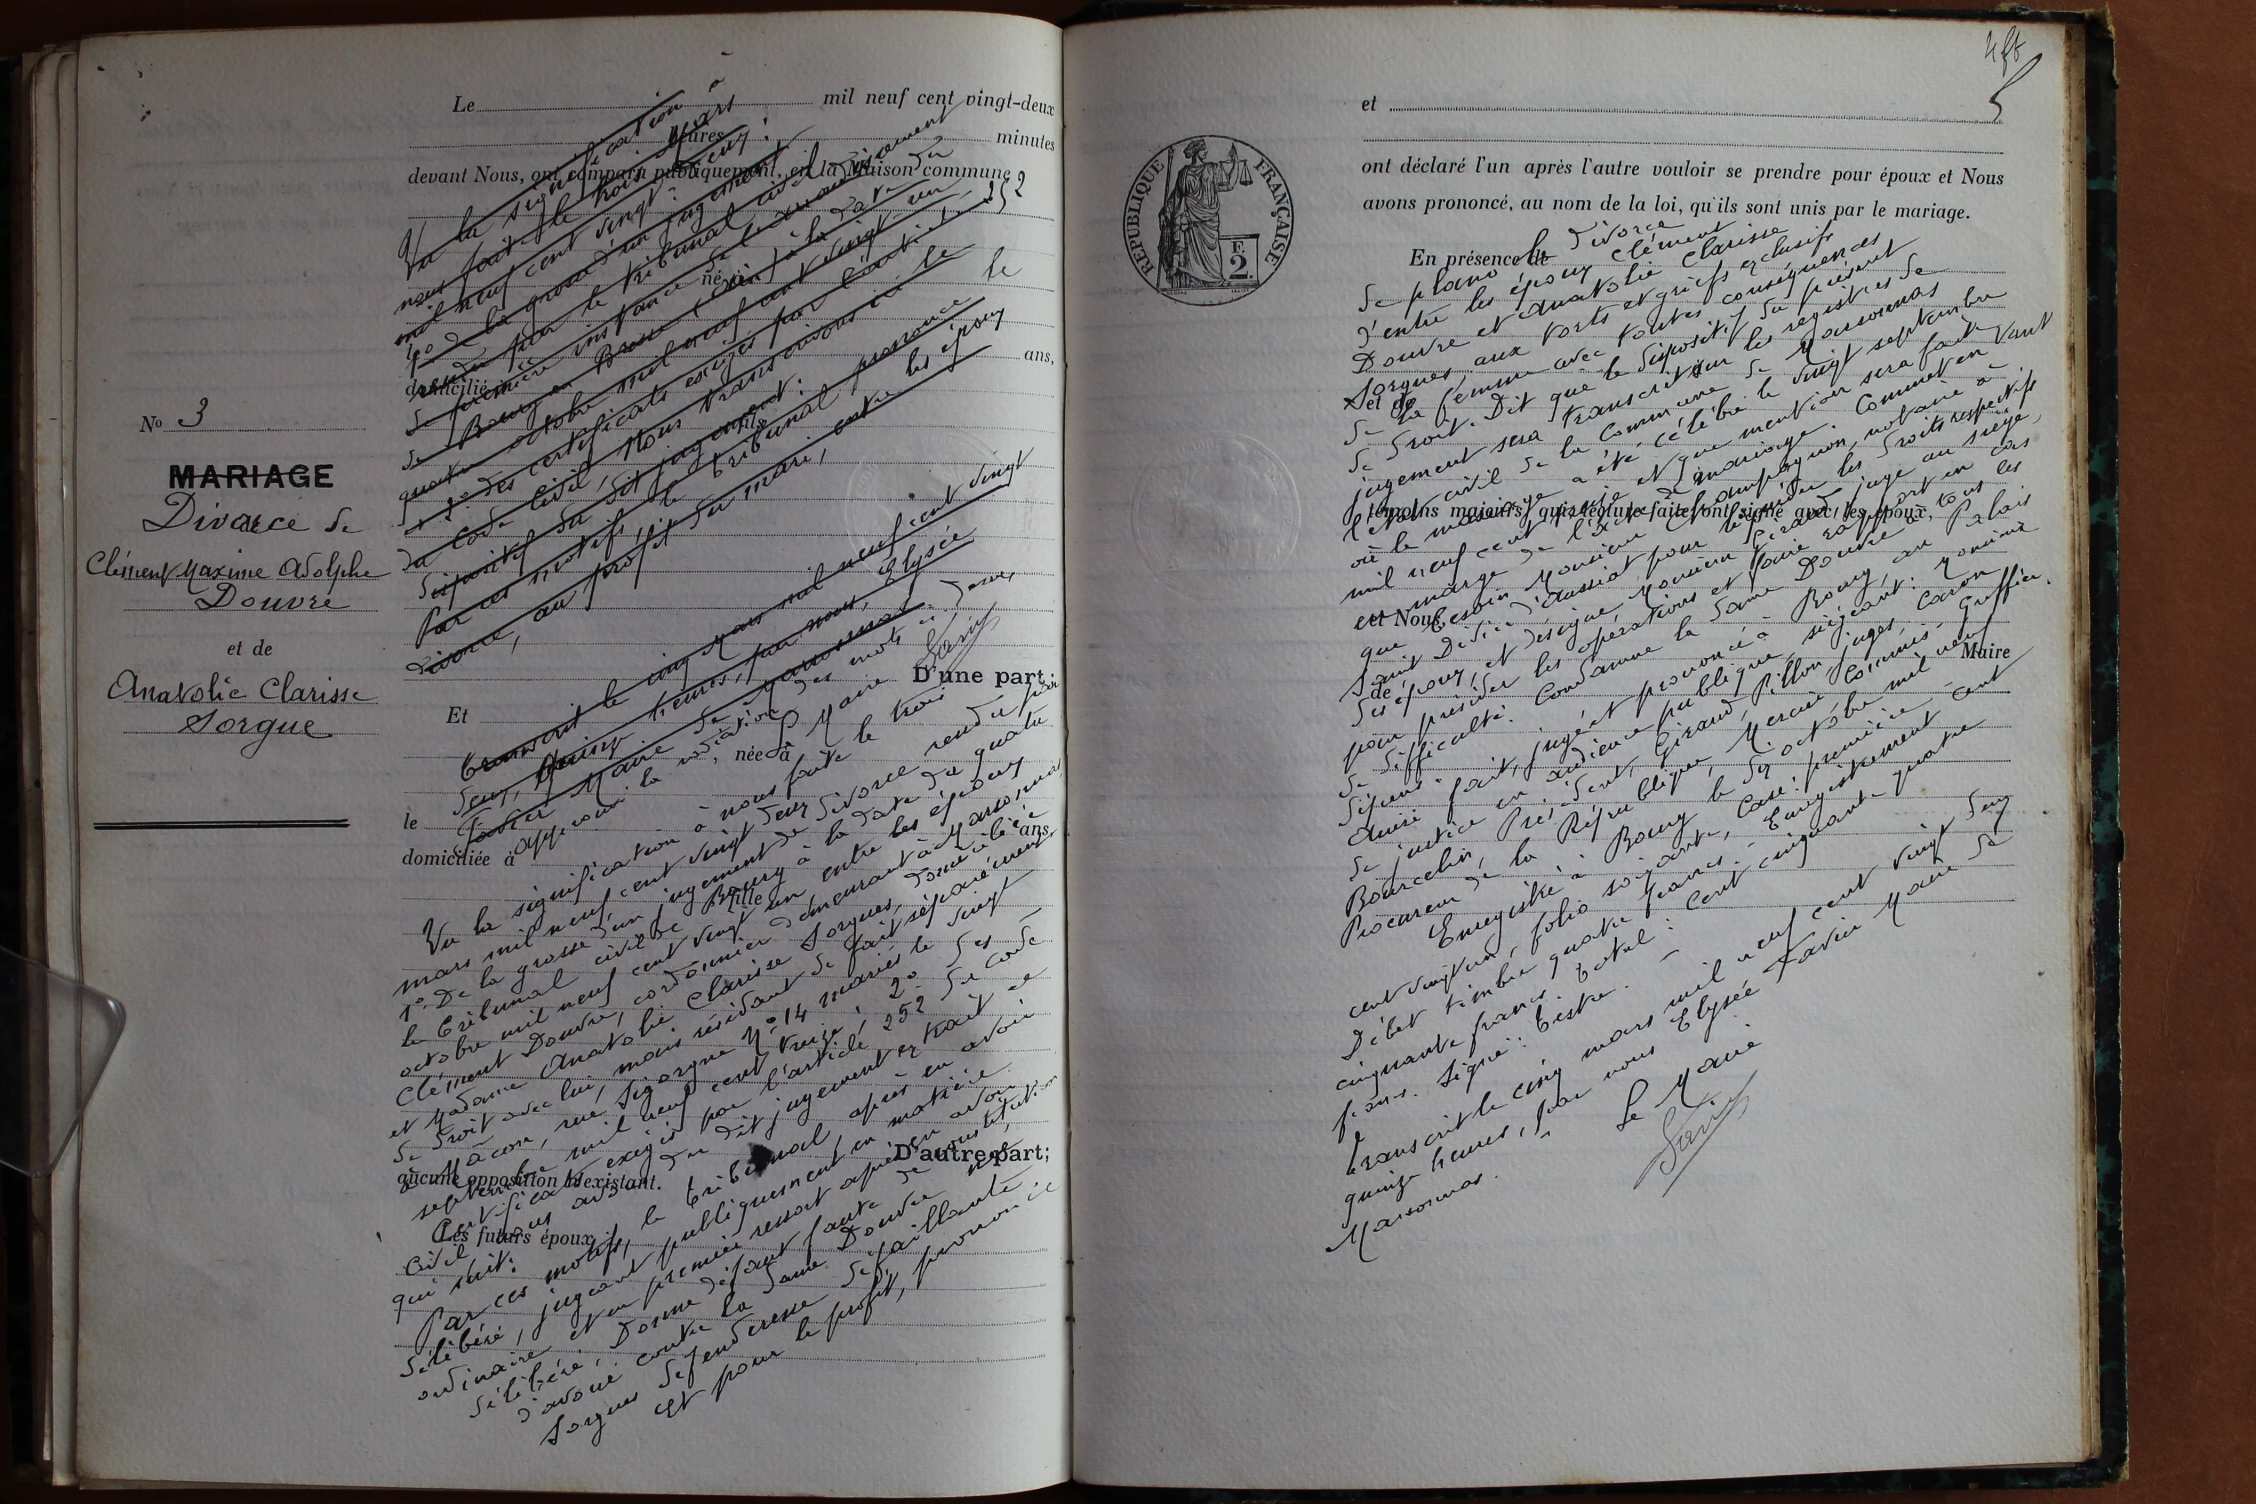 No 3
MARIAGE
Divorce de
Clément Maxime Adolphe
Douvre
et de
Anatolie Clarisse
Sorgue
Le mil neuf cent vingt-deux
heures minutes
devant Nous, ont comparu publiquement, en la Maison commune
né à
le
domicilié à ans,
fils
D'une part;
Et
née à
le
domiciliée à ans,
fille
D'autre part;
aucune opposition n'existant.
Les futurs époux
Vu la signification à
nous faite le trois Mars
mil neuf cent vingt deux:
1º De la grosse d'un jugement
rendu par le tribunal civil
de première instance de l'arrondissement
de Bourg en Bresse (Ain) à la date du
quatre octobre mil neuf cent vingt un
2º des certificats exigés par l'article 252
du code civil, Nous transcrivons ici le
dispositif du dit jugement:
Par ces motifs, le tribunal prononce le
divorce, au profit du mari, entre les époux
Transcrit le cinq Mars mil neuf cent vingt
deux, quinze heures, par nous, Elysée
Favier Maire de Marsonnas
Approuvé la radiation des mots ci-dessus,
Le Maire
Vu la signification à nous faite le trois
mars mil neuf cent vingt deux
1º De la grosse d'un jugement de divorce rendu par
le Tribunal civil de Bourg à la date du quatre
octobre mil neuf cent vingt un entre les époux
Clément Douvre, cordonnier demeurant à Marsonnas
et Madame Anatolie Clarisse Sorgues, domiciliée
de droit avec lui, mais résidant de fait séparément
à Mâcon, rue Sigorgne Nº 14 mariés le vingt
septembre mil neuf cent treize; 2º Des
Certificats exigés par l'article 252 du code
civil nous avons du dit jugement extrait ce
qui suit:
Par ces motifs, le Tribunal, après en avoir
délibéré, jugeant publiquement, en matière
ordinaire et en premier ressort après en avoir
délibéré, Donne défaut faute de constitution
d'avoué contre la dame Douvre née
Sorgues défenderesse défaillante
et pour le profit, prononce
et
ont déclaré l'un après l'autre vouloir se prendre pour époux et Nous
avons prononcé, au nom de la loi, qu'ils sont unis par le mariage.
En présence de
et de
témoins majeurs, qui, lecture faite, ont signé avec les époux
et Nous,
Maire
de
REPUBLIQUE FRANÇAISE
E
2.
de plano le divorce
d'entre les époux Clément
Douvre et Anatolie Clarisse
Sorgues, aux torts et griefs exclusifs
de la femme avec toutes conséquences
de droit. Dit que le dispositif du présent
jugement sera transcrit sur les registres de
l'état civil de la commune de Marsonnas
où le mariage a été célébré le vingt septembre
mil neuf cent treize et que mention sera faite
en marge de l'acte de mariage. Commet en tant
que besoin Monsieur Champagnon, notaire à
Saint Didier d'Aussiat pour liquider les droits respectifs
des époux, et désigne Monsieur Giraud, juge au siège,
pour présider les opérations et faire rapport en cas
de difficulté. Condamne la dame Douvre à tous les
dépens.
Ainsi fait, jugé et prononcé à Bourg, au Palais
de justice en audience publique, siégeant: Monsieur
Bourcelin, Président, Giraud, Pillon juges, Caron
Procureur de la République, Mercier Commis-Greffier.
Enregistré à Bourg le dix octobre mil neuf
cent vingt un, folio soixante, Case première.
Débet timbre quatre francs. Enregistrement cent
cinquante francs. Total: Cent cinquante quatre
francs. Signé:
Transcrit le cinq mars mil neuf cent vingt deux
quinze heures, par nous Elysée Favier Maire de
Marsonnas.
Le Maire